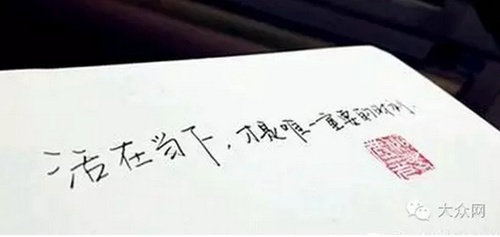 活在当下，才是唯一重要的时刻.
大众网